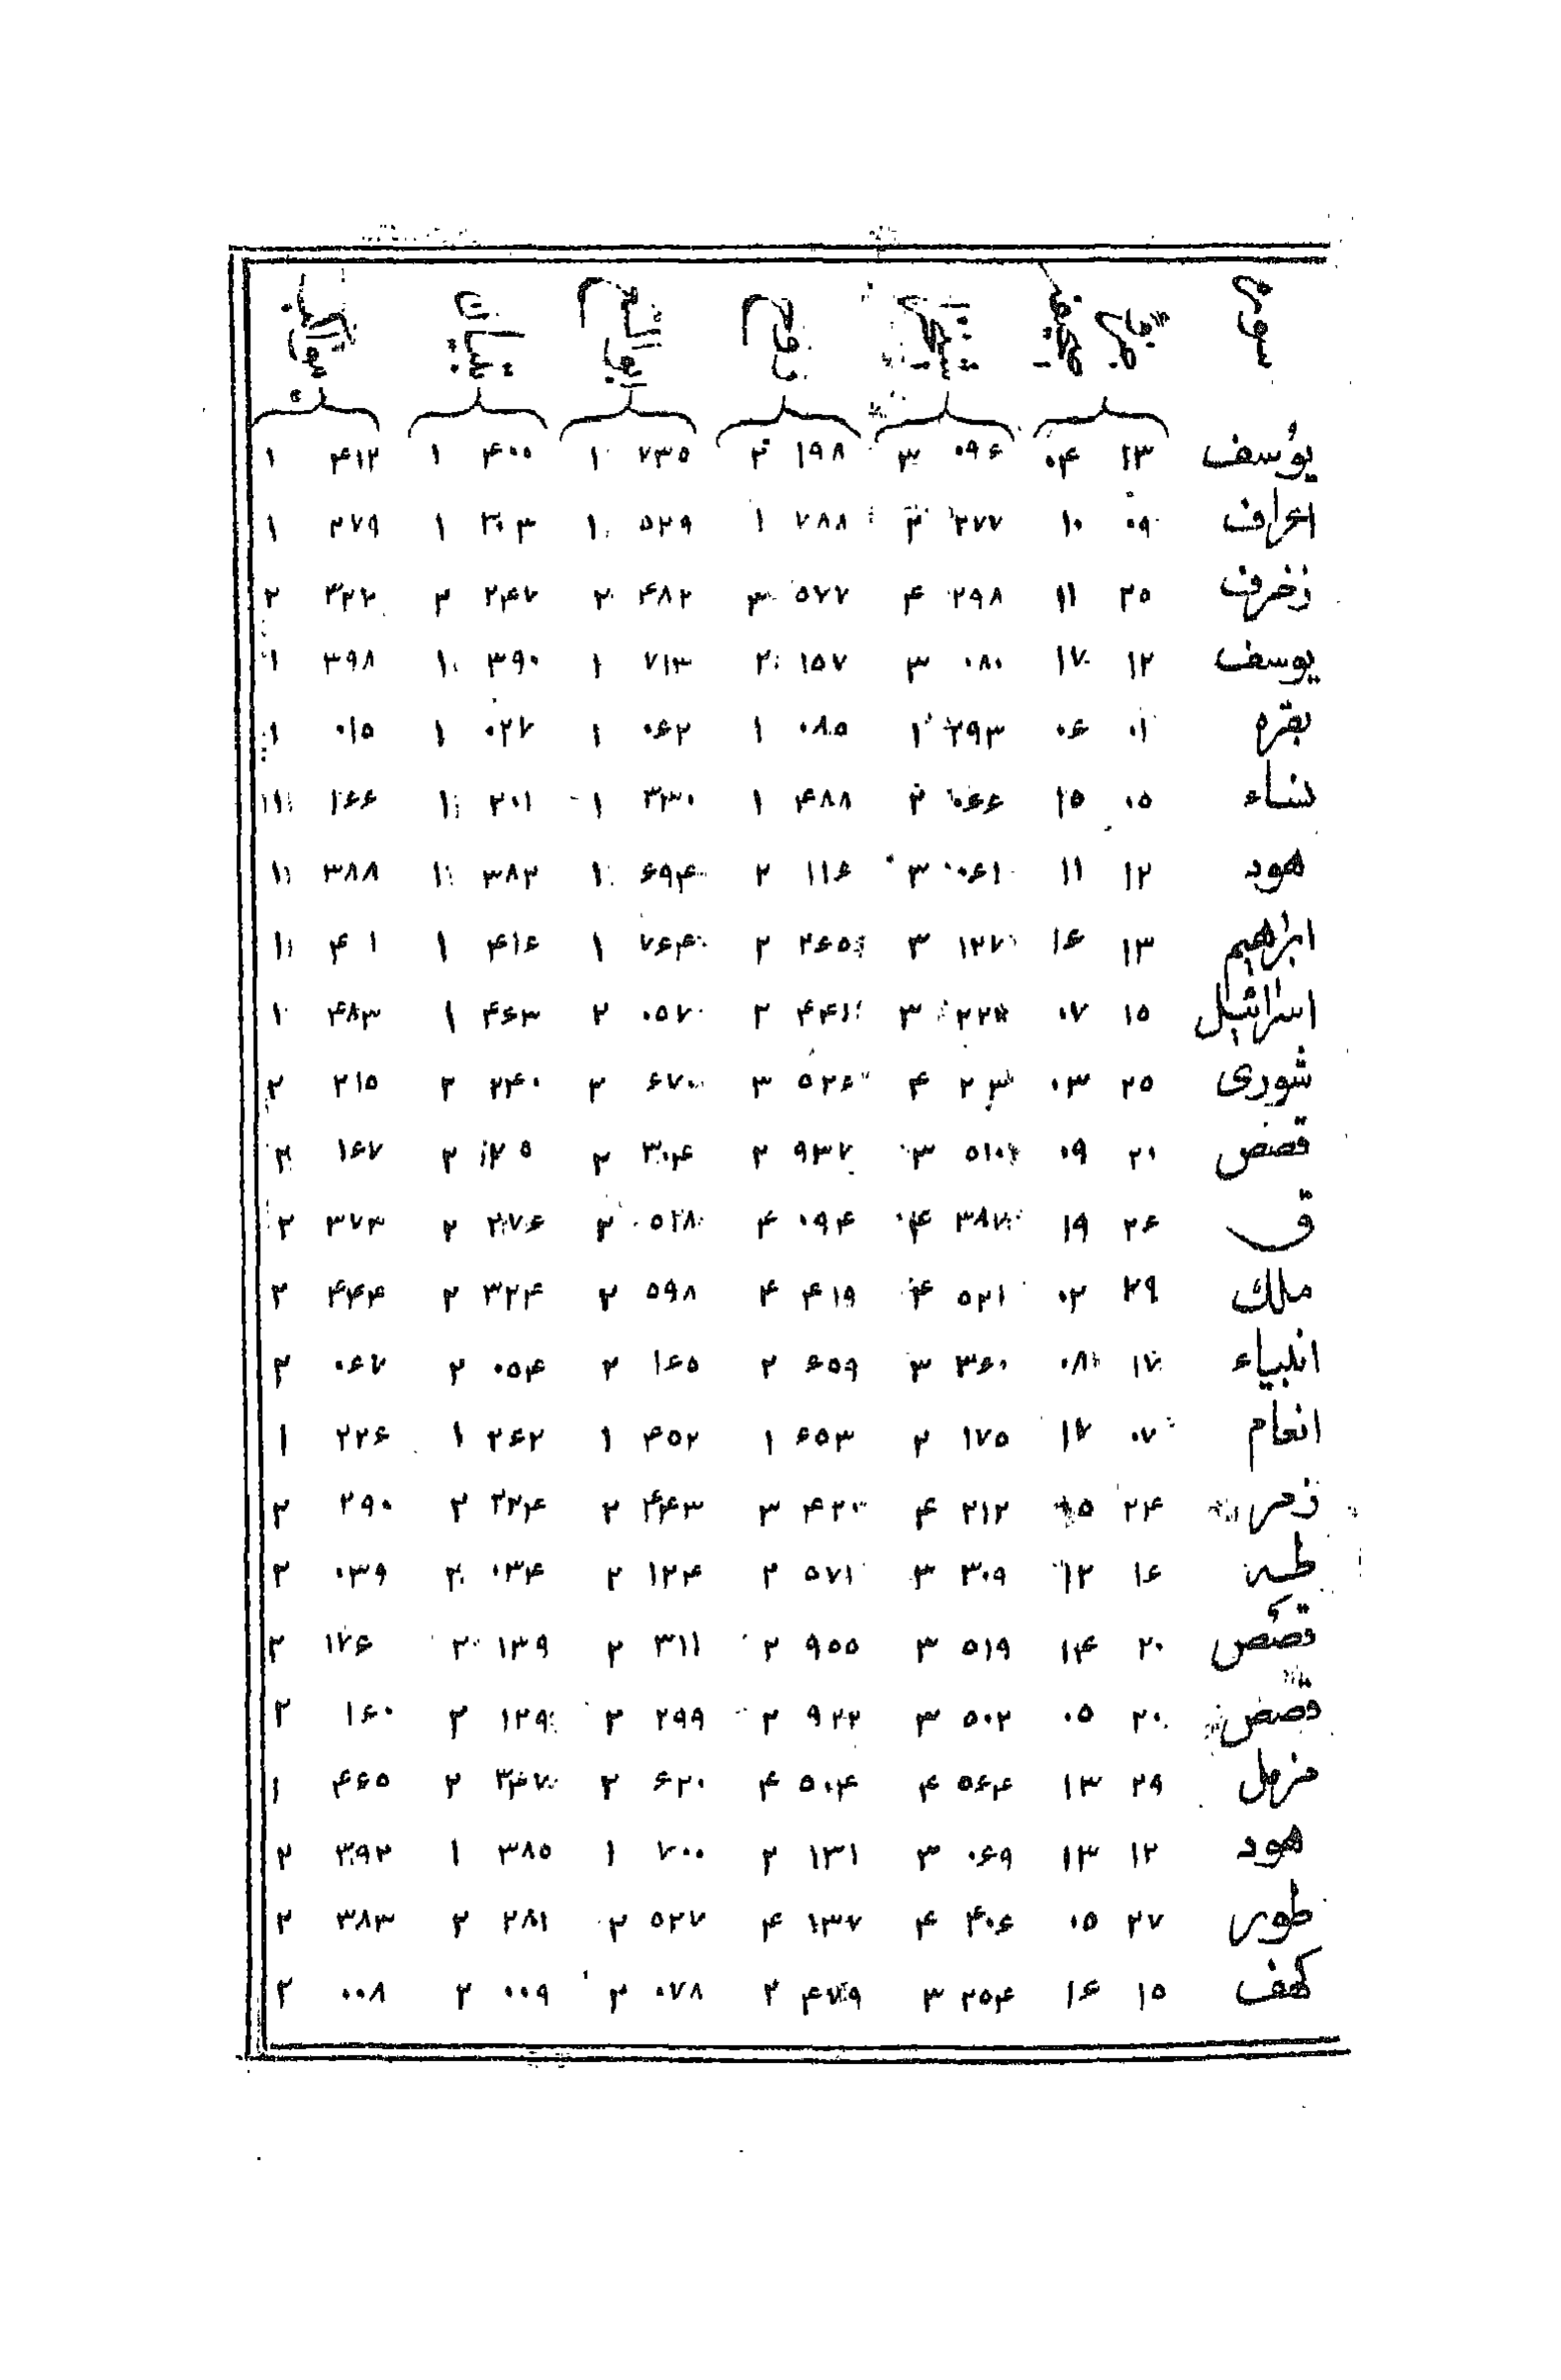 یوسف ۱۳ ۰۴ ۰۹۶ ۳ ۱۹۸ ۲ ۷۳۵ ۱ ۴۰۰ ۱ ۴۱۲ ۱
اعراف ۰۹ ۱۰ ۲۷۷ ۲ ۷۸۸ ۱ ۵۲۹ ۱ ۳۰۳ ۱ ۲۷۹ ۱
زخرف ۲۵ ۱۱ ۲۹۸ ۴ ۵۷۷ ۳ ۴۸۲ ۲ ۲۴۷ ۲ ۳۲۲ ۲
یوسف ۱۲ ۱۷ ۰۸۰ ۳ ۱۵۷ ۲ ۷۱۳ ۱ ۳۹۰ ۱ ۳۹۸ ۱
بقره ۰۱ ۰۶ ۲۹۳ ۱ ۰۸۵ ۱ ۰۶۲ ۱ ۰۲۷ ۱ ۰۱۵ ۱
نساء ۰۵ ۱۵ ۰۶۶ ۲ ۴۸۸ ۱ ۳۳۰ ۱ ۲۰۱ ۱ ۱۶۶ ۱
هود ۱۲ ۱۱ ۰۶۱ ۳ ۱۱۶ ۲ ۶۹۴ ۱ ۳۸۲ ۱ ۳۸۸ ۱
ابراهیم ۱۳ ۱۶ ۱۲۷ ۳ ۲۶۵ ۲ ۷۶۴ ۱ ۴۱۶ ۱ ۴۱ ۱
اسرائیل ۱۵ ۰۷ ۳ ۴۴۱ ۲ ۰۵۷ ۲ ۴۶۳ ۱ ۴۸۳ ۱
شوری ۲۵ ۰۳ ۲۳ ۴ ۵۲۶ ۳ ۶۷۰ ۲ ۲۴۰ ۲ ۲۱۵ ۲
قصص ۲۰ ۰۹ ۵۱۰ ۳ ۹۳۷ ۲ ۳۰۴ ۲ ۲ ۱۶۷ ۲
ق ۲۶ ۱۹ ۳۸۷ ۴ ۰۹۴ ۴ ۵۲۸ ۲ ۲۷۶ ۲ ۳۷۳ ۲
ملک ۲۹ ۰۲ ۵۲۱ ۴ ۴۱۹ ۴ ۵۹۸ ۲ ۳۲۴ ۲ ۴۴۴ ۲
انبیاء ۱۷ ۰۸ ۳۶۰ ۳ ۶۵۹ ۲ ۱۶۵ ۲ ۰۵۴ ۲ ۰۶۷ ۲
انعام ۰۷ ۱۷ ۱۷۵ ۲ ۶۵۳ ۱ ۴۵۲ ۱ ۲۶۲ ۱ ۲۲۶ ۱
زمر ۲۴ ۱۵ ۲۱۲ ۴ ۴۲۰ ۳ ۴۴۳ ۲ ۲۲۴ ۲ ۲۹۰ ۲
طه ۱۶ ۱۲ ۳۰۹ ۳ ۵۷۱ ۲ ۱۲۴ ۲ ۰۳۴ ۲ ۰۳۹ ۲
قصص ۲۰ ۱۴ ۵۱۹ ۳ ۹۵۵ ۲ ۳۱۱ ۲ ۱۳۹ ۲ ۱۷۶ ۲
قصص ۲۰ ۰۵ ۵۰۲ ۳ ۹۲۲ ۲ ۲۹۹ ۲ ۱۲۹ ۲ ۱۶۰ ۲
مزمل ۲۹ ۱۳ ۵۶۴ ۴ ۵۰۴ ۴ ۶۲۰ ۲ ۳۴۷ ۲ ۴۶۵ ۱
هود ۱۲ ۱۳ ۰۶۹ ۳ ۱۳۱ ۲ ۷۰۰ ۱ ۳۸۵ ۱ ۳۹۲ ۲
طور ۲۷ ۰۵ ۴۰۶ ۴ ۱۳۷ ۴ ۵۲۷ ۲ ۲۸۱ ۲ ۳۸۳ ۲
کهف ۱۵ ۱۶ ۲۵۴ ۳ ۴۷۹ ۲ ۰۷۸ ۲ ۰۰۹ ۲ ۰۰۸ ۲